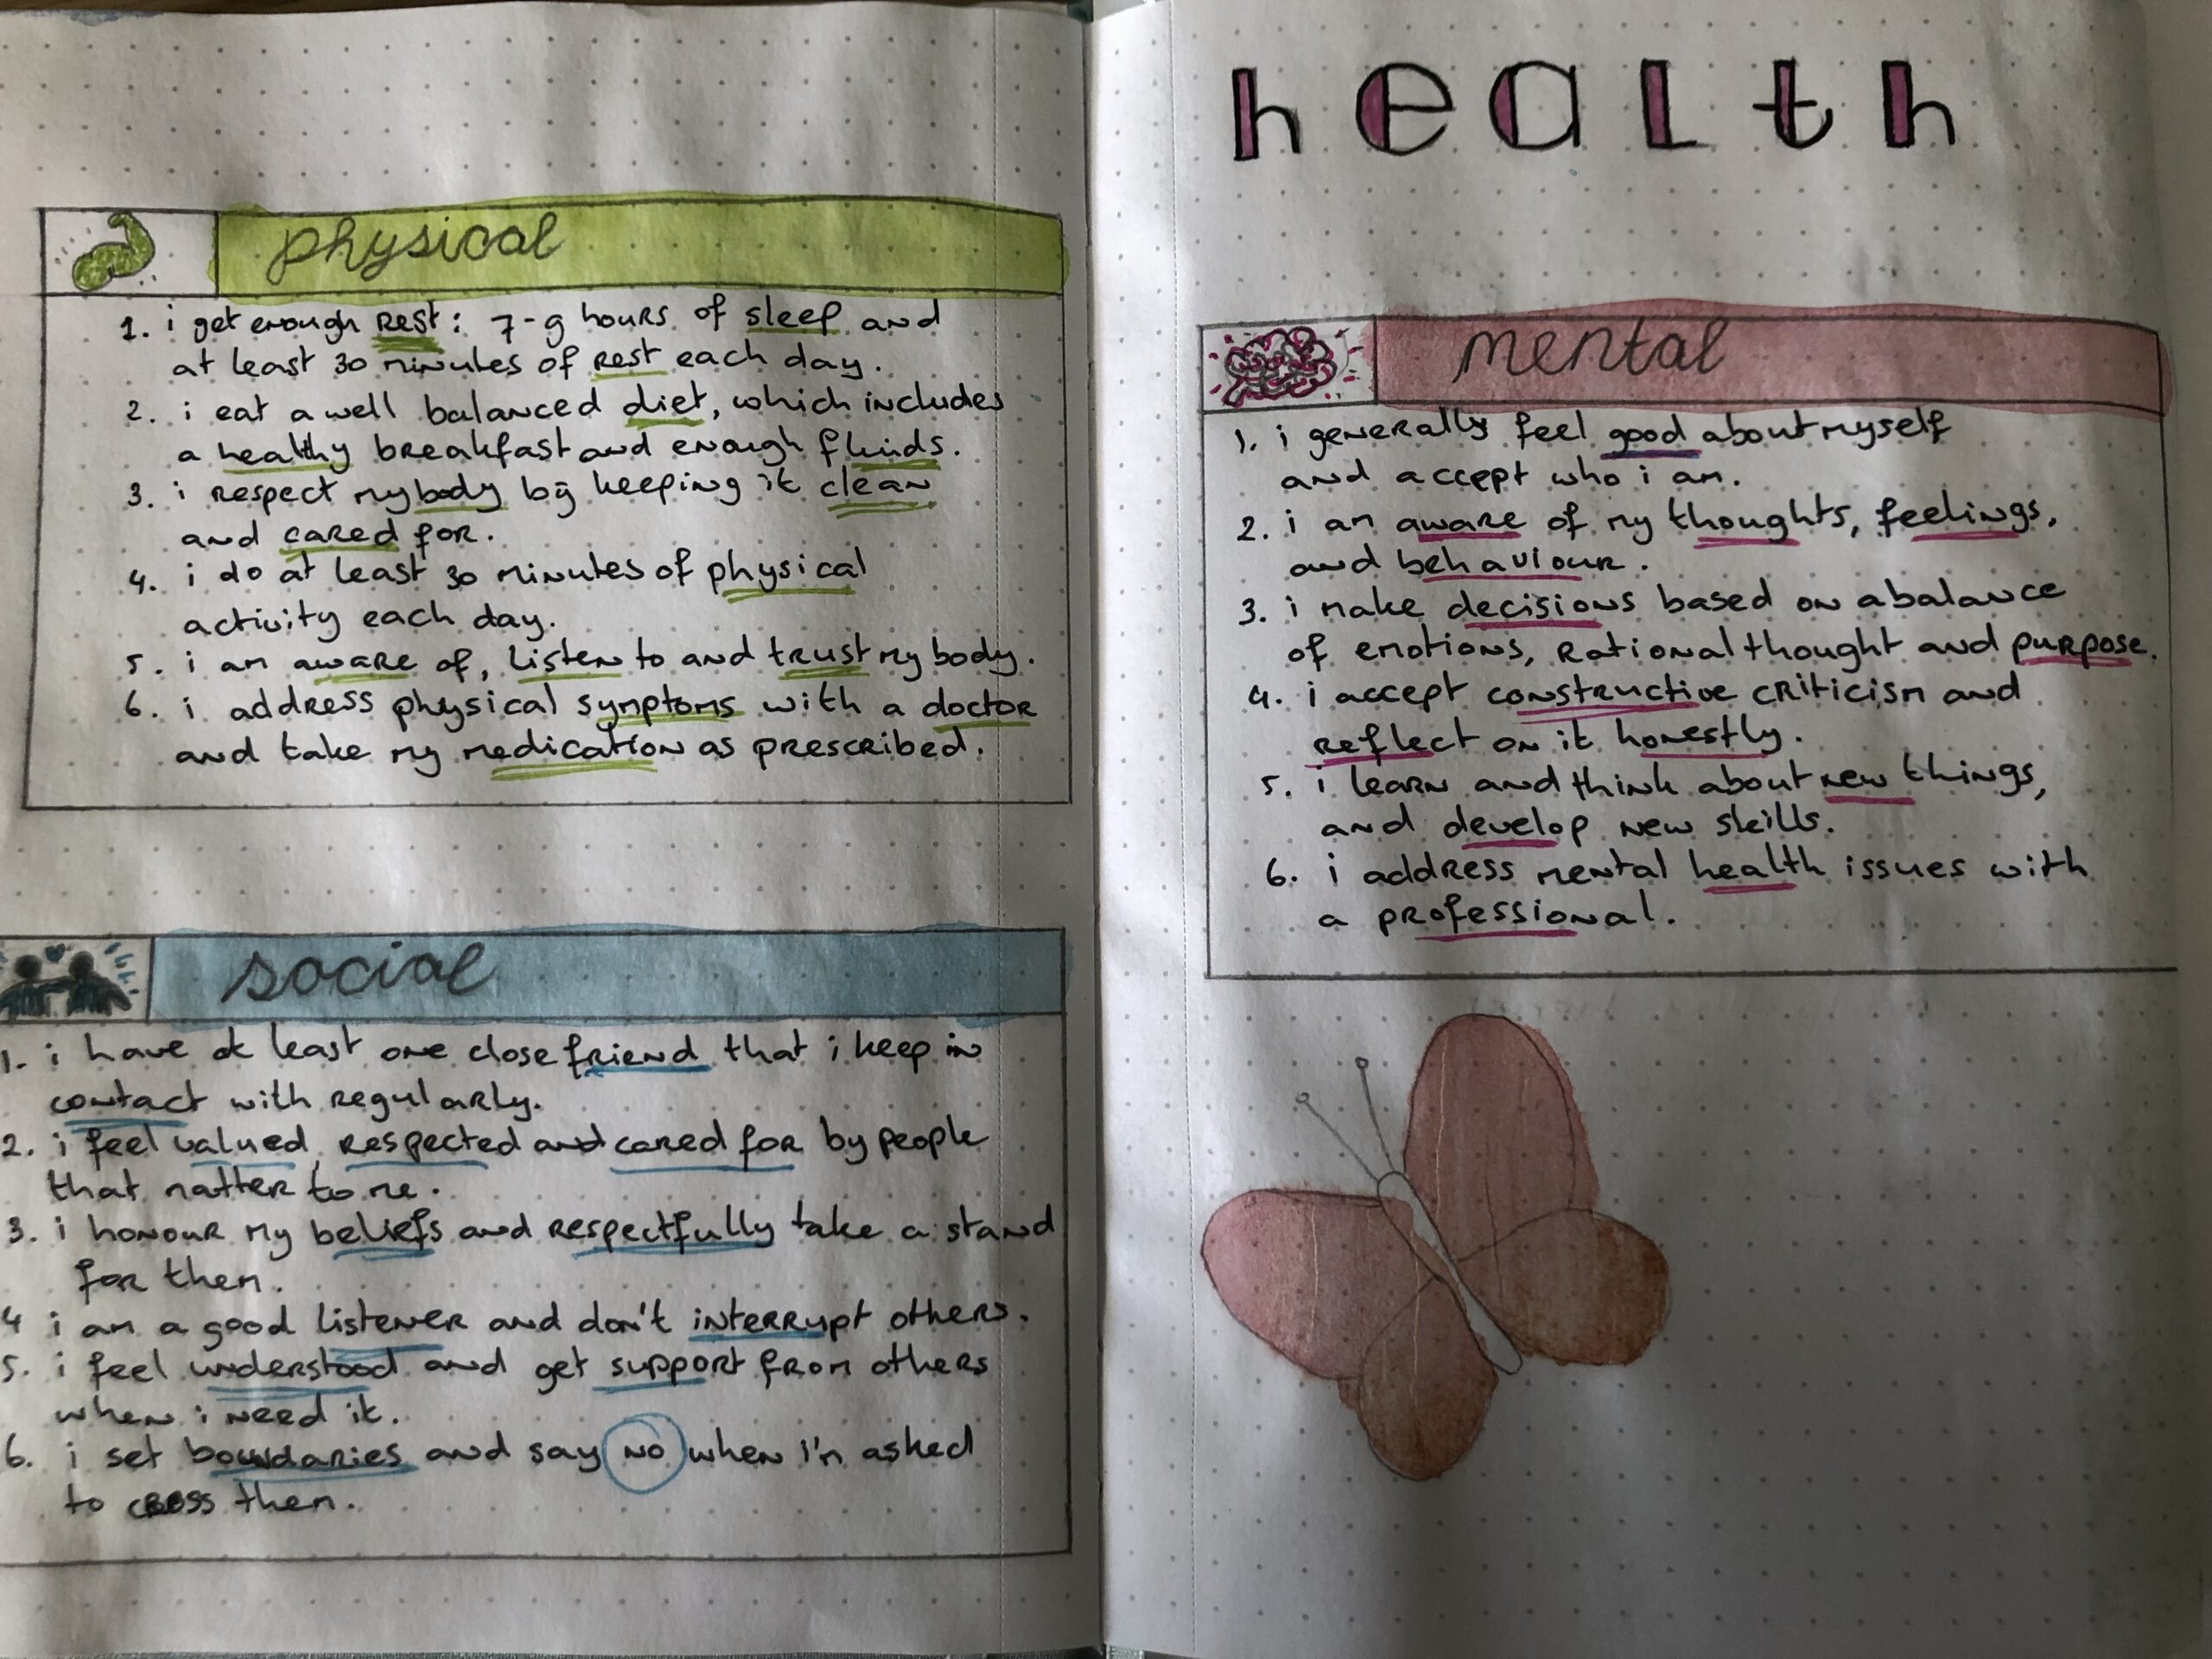 physical
1. i get enough rest: 7-9 hours of sleep and
at least 30 minutes of rest each day.
2. i eat a well balanced diet, which includes
a healthy breakfast and enough fluids.
3. i respect my body by keeping it clean
and cared for.
4. i do at least 30 minutes of physical
activity each day.
5. i am aware of, listen to and trust my body.
6. i address physical symptoms with a doctor
and take my medication as prescribed.
social
1. i have at least one close friend that i keep in
contact with regularly.
2. i feel valued, respected and cared for by people
that matter to me.
3. i honour my beliefs and respectfully take a stand
for them.
4 i am a good listener and don't interrupt others.
5. i feel understood and get support from others
when i need it.
6. i set boundaries and say no when i'm asked
to cross them.
health
mental
1. i generally feel good about myself
and accept who i am.
2. i am aware of my thoughts, feelings,
and behaviour.
3. i make decisions based on a balance
of emotions, rational thought and purpose.
4. i accept constructive criticism and
reflect on it honestly.
5. i learn and think about new things,
and develop new skills.
6. i address mental health issues with
a professional.